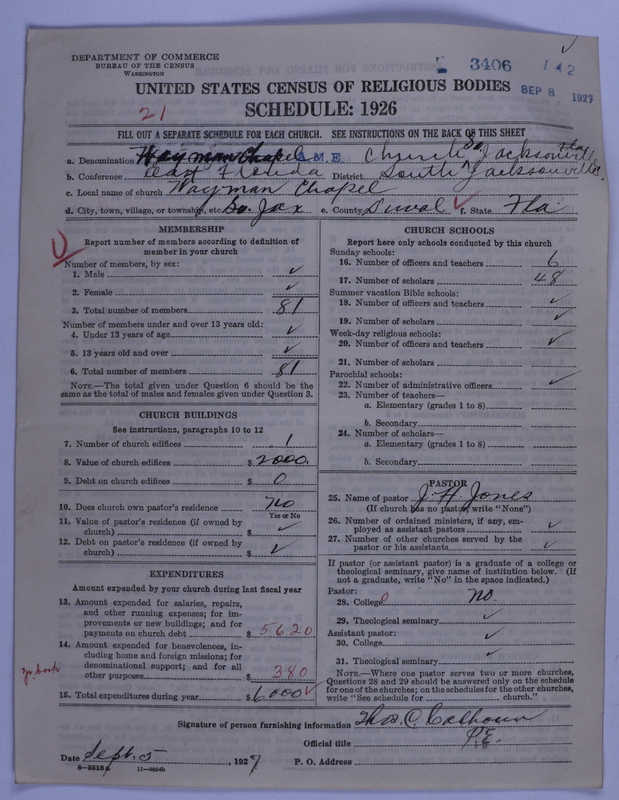 DEPARTMENT OF COMMERCE
BUREAU OF THE CENSUS
WASHINGTON
3406 142
SEP 8 1927
UNITED STATES CENSUS OF RELIGIOUS BODIES
21 SCHEDULE: 1926
FILL OUT A SEPARATE SCHEDULE FOR EACH CHURCH. SEE INSTRUCTIONS ON THE BACK OF THIS SHEET
a. Denomination Wayman Chapel A.M.E. Church So Jacksonville Fla
b. Conference East Florida District South Jacksonville
c. Local name of church Wayman Chapel
d. City, town, village, or township, etc. So. Jax e. County Duval f. State Fla
MEMBERSHIP
Report number of members according to definition of
member in your church
Number of members, by sex:
1. Male ✓
2. Female ✓
3. Total number of members 81
Number of members under and over 13 years old:
4. Under 13 years of age ✓
5. 13 years old and over ✓
6. Total number of members 81
NOTE.—The total given under Question 6 should be the
same as the total of males and females given under Question 3.
CHURCH BUILDINGS
See instructions, paragraphs 10 to 12
7. Number of church edifices 1
8. Value of church edifices $ 2000.
9. Debt on church edifices $ 0
10. Does church own pastor's residence No
Yes or No
11. Value of pastor's residence (if owned by
church) $ ✓
12. Debt on pastor's residence (if owned by
church) $ ✓
EXPENDITURES
Amount expended by your church during last fiscal year
13. Amount expended for salaries, repairs,
and other running expenses; for im-
provements or new buildings; and for
payments on church debt $ 5620
14. Amount expended for benevolences, in-
cluding home and foreign missions; for
denominational support; and for all
other purposes $ 380
15. Total expenditures during year $ 6000 ✓
CHURCH SCHOOLS
Report here only schools conducted by this church
Sunday schools:
16. Number of officers and teachers 6
17. Number of scholars 48
Summer vacation Bible schools:
18. Number of officers and teachers ✓
19. Number of scholars ✓
Week-day religious schools:
20. Number of officers and teachers ✓
21. Number of scholars
Parochial schools:
22. Number of administrative officers ✓
23. Number of teachers—
a. Elementary (grades 1 to 8)
b. Secondary
24. Number of scholars—
a. Elementary (grades 1 to 8)
b. Secondary
PASTOR
25. Name of pastor J. H. Jones
(If church has no pastor, write "None")
26. Number of ordained ministers, if any, em-
ployed as assistant pastors ✓
27. Number of other churches served by the
pastor or his assistants ✓
If pastor (or assistant pastor) is a graduate of a college or
theological seminary, give name of institution below. (If
not a graduate, write "No" in the space indicated.)
Pastor:
28. College 0 no
29. Theological seminary ✓
Assistant pastor:
30. College ✓
31. Theological seminary ✓
NOTE.—Where one pastor serves two or more churches,
Questions 28 and 29 should be answered only on the schedule
for one of the churches; on the schedules for the other churches,
write "See schedule for church."
Signature of person furnishing information Thos. C. Calhoun
Official title P.E.
Date Sept. 5, 1927 P. O. Address
8—5518a 11—9024b